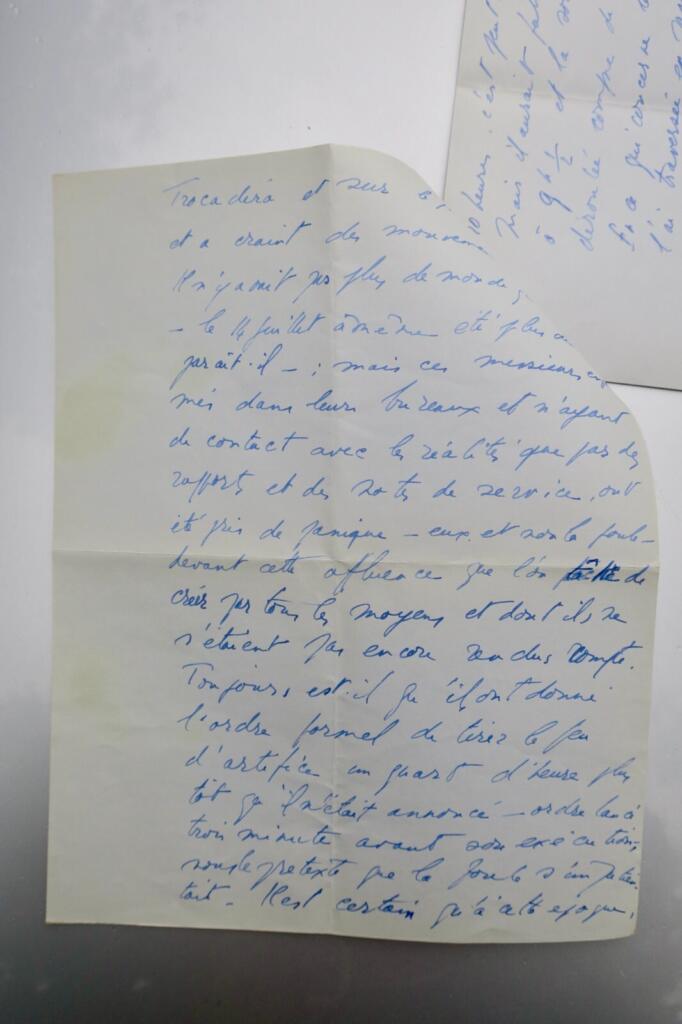 Trocadéro et sur
et a craint des mouvem
Il n'y avait pas plus de monde
- le 14 juillet a même été plus
paraît-il - ; mais ces messieurs en
més dans leurs bureaux et n'ayant
de contact avec les réalités que par des
rapports et des notes de service, ont
été pris de panique - eux et non la foule -
devant cette affluence que l'on tâche de
créer par tous les moyens et dont ils ne
s'étaient pas encore rendus compte.
Toujours est-il qu'il ont donné
l'ordre formel de tirer le feu
d'artifice un quart d'heure plus
tôt qu'il n'était annoncé - ordre lancé
trois minute avant son exécution,
sous le prétexte que la foule s'impatien-
tait - Il est certain qu'à cette époque,
10 heures, c'est peut
mais il aurait fal
à 9 h 1/2 et la so
déroulée comme de
En ce qui concerne
l'ai traversée en